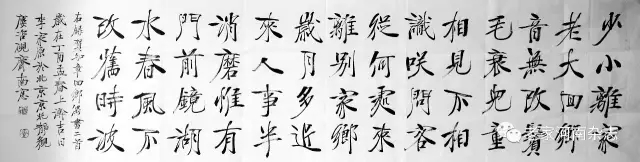 少小離家
老大回鄉
音無改鬢
毛衰兒童
相見不相
識咲問客
從何處來
離別家鄉
歲月多近
來人事半
消磨惟有
門前鏡湖
水春風不
改舊時波
右錄賀知章回鄉偶書二首
歲在丁酉孟春上浣吉日
於北京京北靜觀
硯齋南窓
河南杂志